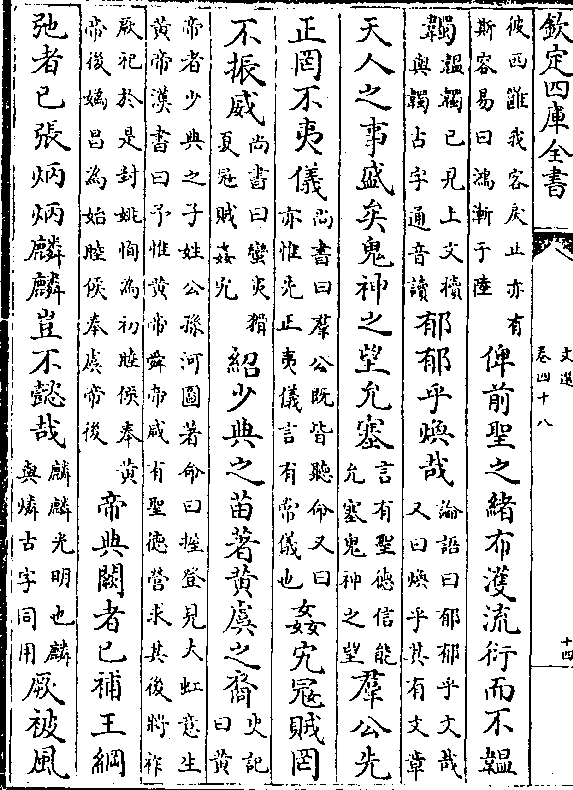 欽定四庫全書
文選
卷四十八
十四
彼西雝我客戾止亦有
斯容易曰鴻漸于陸
俾前聖之緒布濩流衍而不韞
韣
韞韣已見上文櫝
與韣古字通音讀
郁郁乎煥哉
論語曰郁郁乎文哉
又曰煥乎其有文章
天人之事盛矣鬼神之望允塞
言有聖德信能
允塞鬼神之望
羣公先
正罔不夷儀
尚書曰羣公既皆聽命又曰
亦惟先正夷儀言有常儀也
姦宄宼賊罔
不振威
尚書曰蠻夷猾
夏宼賊姦宄
紹少典之苗著黄虞之裔
史記
曰黄
帝者少典之子姓公孫河圖著命曰握登見大虹意生
黄帝漢書曰予惟黄帝舜帝咸有聖德營求其後將祚
厥祀於是封姚恂為初睦侯奉黄
帝後媯昌為始睦侯奉虞帝後
帝典闕者已補王綱
弛者已張炳炳麟麟豈不懿哉
麟麟光明也麟
與燐古字同用
厥被風